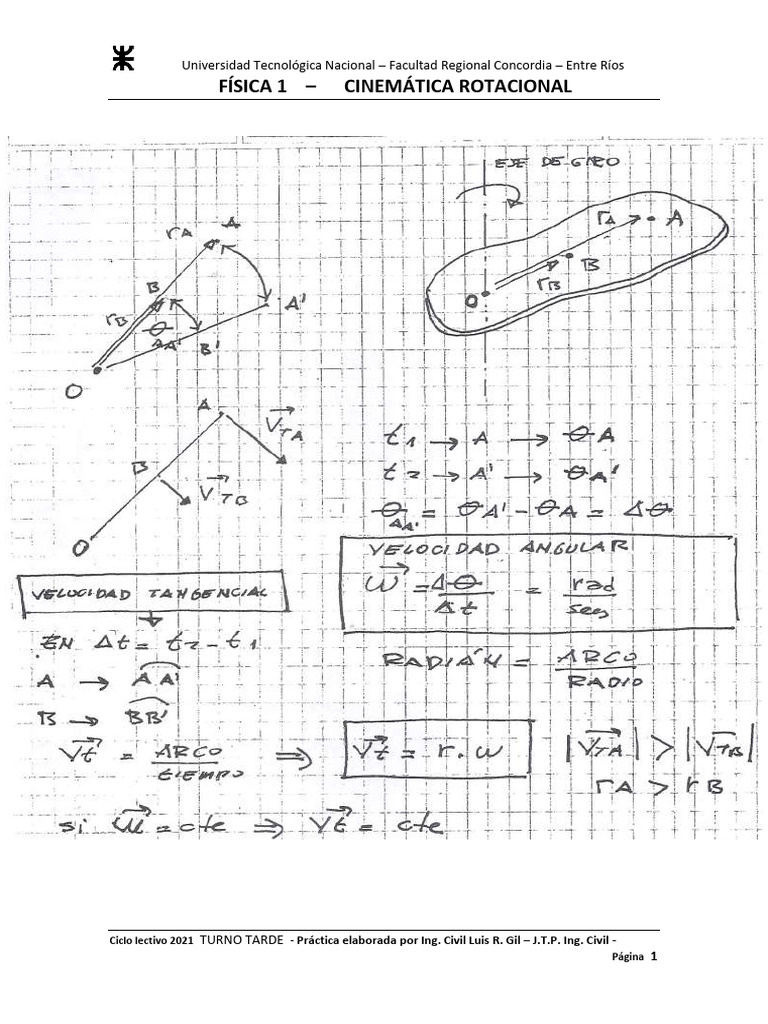 Universidad Tecnológica Nacional – Facultad Regional Concordia – Entre Ríos
FÍSICA 1 – CINEMÁTICA ROTACIONAL
EJE DE GIRO
rA A
B
rB
θ
AA'
B'
A'
O
rA A
B
rB
O
A
VTA
B
VTB
O
t1 → A → θA
t2 → A' → θA'
θAA' = θA' - θA = Δθ
VELOCIDAD ANGULAR
ω = Δθ/Δt = rad/seg
RADIÁN = ARCO/RADIO
VELOCIDAD TANGENCIAL
EN Δt = t2 - t1
A → AA'
B → BB'
Vt = ARCO/TIEMPO ⇒ Vt = r.ω
|VTA| > |VTB|
rA > rB
si ω = cte ⇒ Vt = cte
Ciclo lectivo 2021 TURNO TARDE - Práctica elaborada por Ing. Civil Luis R. Gil – J.T.P. Ing. Civil -
Página 1